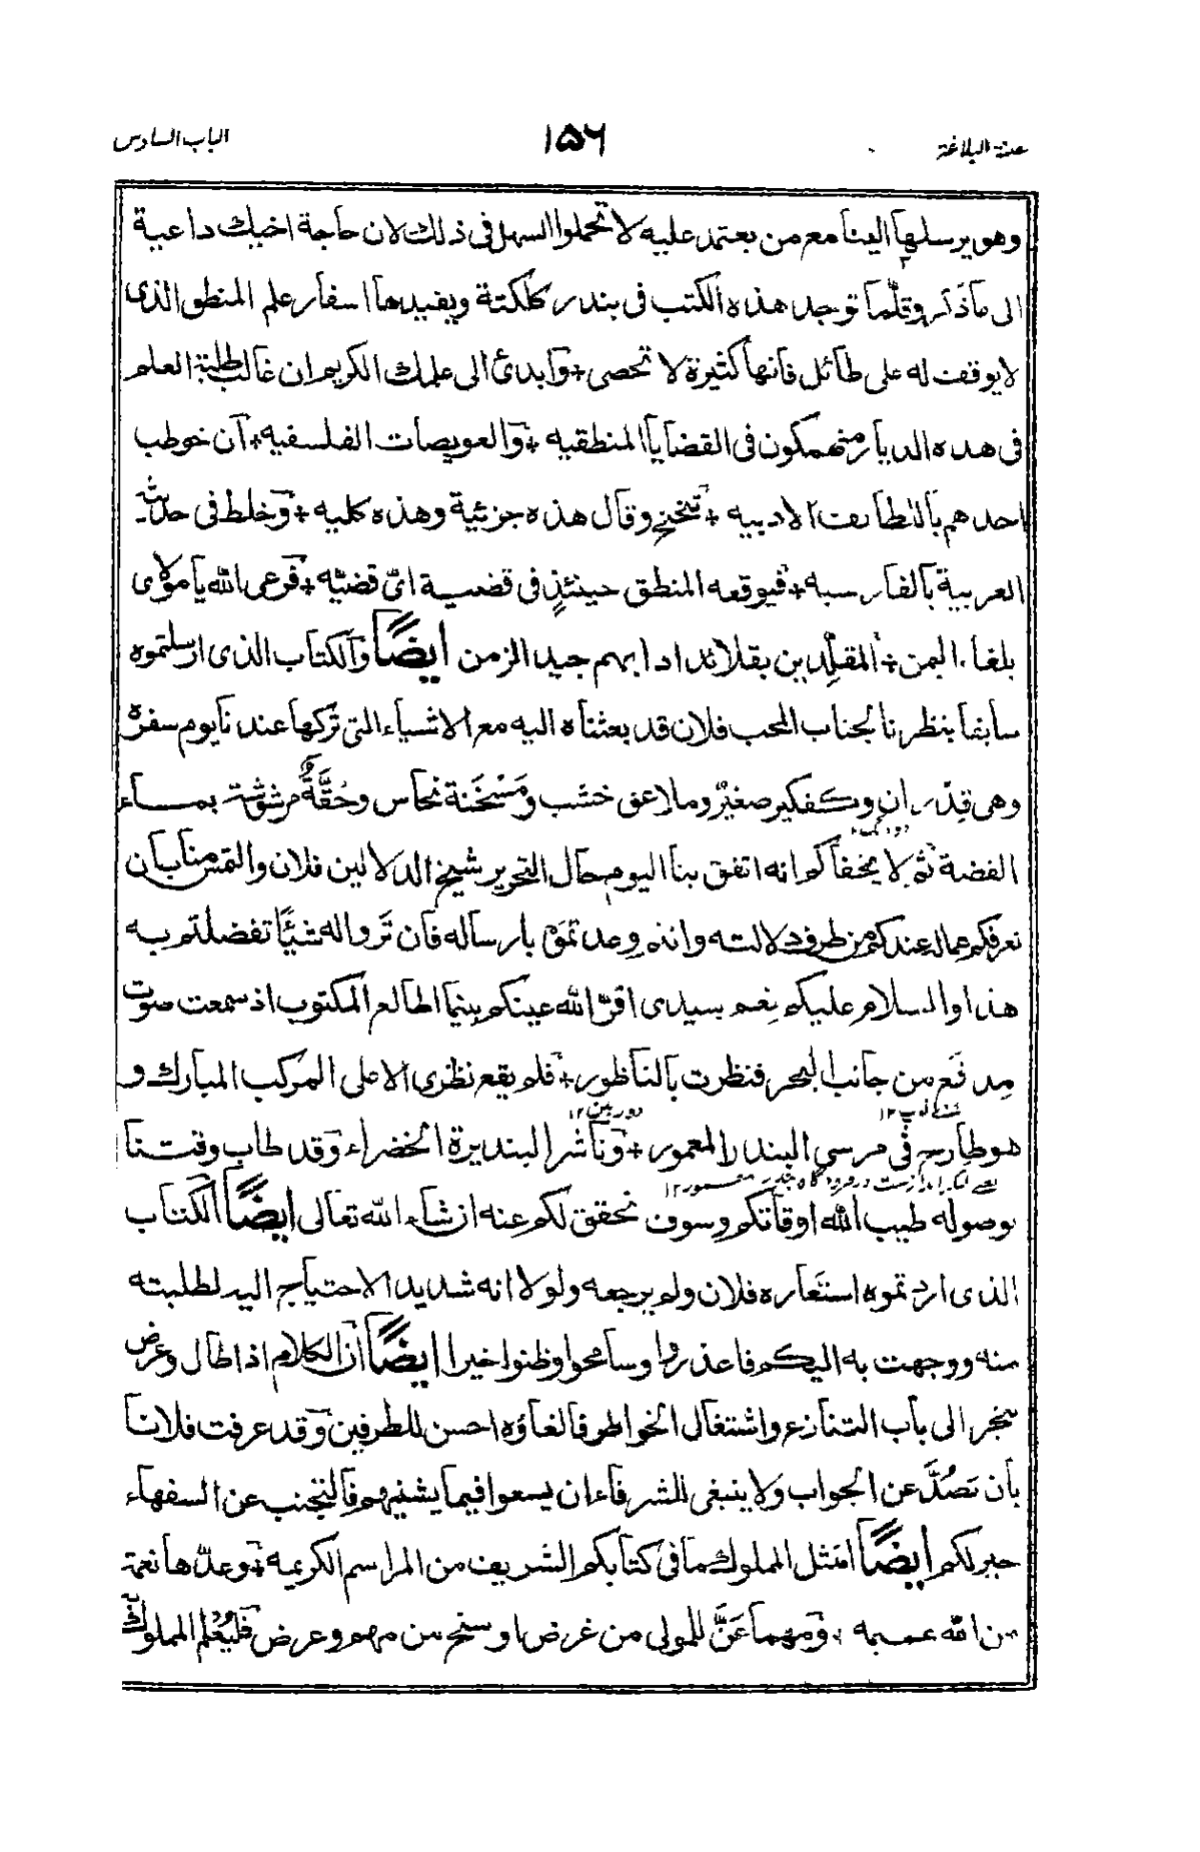 الباب السادس
١٥٦
وهو يرسلها الينا مع من يعتمد عليه لا تحملوا السهل فى ذلك لان حاجة اخيك داعية
الى ما ذكر وقلّما توجد هذه الكتب فى بندر كلكتة ويفيدها اسفار علم المنطق الذى
لا يوقف له على طائل فانها كثيرة لا تحصى + وابدئ الى علمك الكريم ان غالب طلبة العلم
فى هذه الديار منهمكون فى القضايا المنطقيه + والعويصات الفلسفيه + ان خوطب
احدهم باللطائف الادبيه + تنحنح وقال هذه جزئية وهذه كليه + وخلط فى حديثه
العربية بالفارسيه + فيوقعه المنطق حينئذٍ فى قضية اىّ قضيّه + فرعى الله يا مولاى
بلغاء اليمن + المقلّدين بقلائد ادابهم جيد الزمن ايضًا والكتاب الذى ارسلتموه
سابقا بنظرنا لجناب المحب فلان قد بعثناه اليه مع الاشياء التى تركها عندنا يوم سفره
وهى قِدْران وكفكير صغيرٌ وملاعق خشب ومَسْخَنة نحاس وحُقَّةٌ مرشوشة بماء
الفضة ثم لا يخفاكم انه اتفق بنا اليوم حال التحرير شيخ الدلالين فلان والتمس منا بان
نعرفكم عماله عندكم من طرف دلالته وانه وعدتموه بارساله فان تروا له شئًا تفضلتم به
هذا والسلام عليكم نعم سيدى اقرّ الله عينكم بينما اطالع المكتوب اذ سمعت صوت
مدفع من جانب البحر فنظرت بالناظور + فلم يقع نظرى الا على المركب المبارك و
دوربين ١٢
هو طارح فى مرسى البندر المعمور + وناشر البنديرة الخضراء وقد طاب وقتنا
بوصوله طيب الله اوقاتكم وسوف نحقق لكم عنه ان شاء الله تعالى ايضًا الكتاب
الذى اردتموه استعاره فلان ولم يرجعه ولولا انه شديد الاحتياج اليه لطلبته
منه ووجهت به اليكم فاعذروا وسامحوا وظنوا خيرا ايضًا ان الكلام اذا طال وعرض
ينجر الى باب التنازع واشتغال الخواطر فالغاؤه احسن للطرفين وقد عرفت فلانا
بان تَصُدَّ عن الجواب ولا ينبغى للشرفاء ان يسعوا فيما يشنيهم فالتجنب عن السفهاء
خير لكم ايضًا امتثل المملوك ما فى كتابكم الشريف من المراسم الكريمه + وعدّها نعمة
من الله عميمه + ومهما عَنَّ للمولى من غرض او سنح من مهم وعرض فليُعْلم المملوك